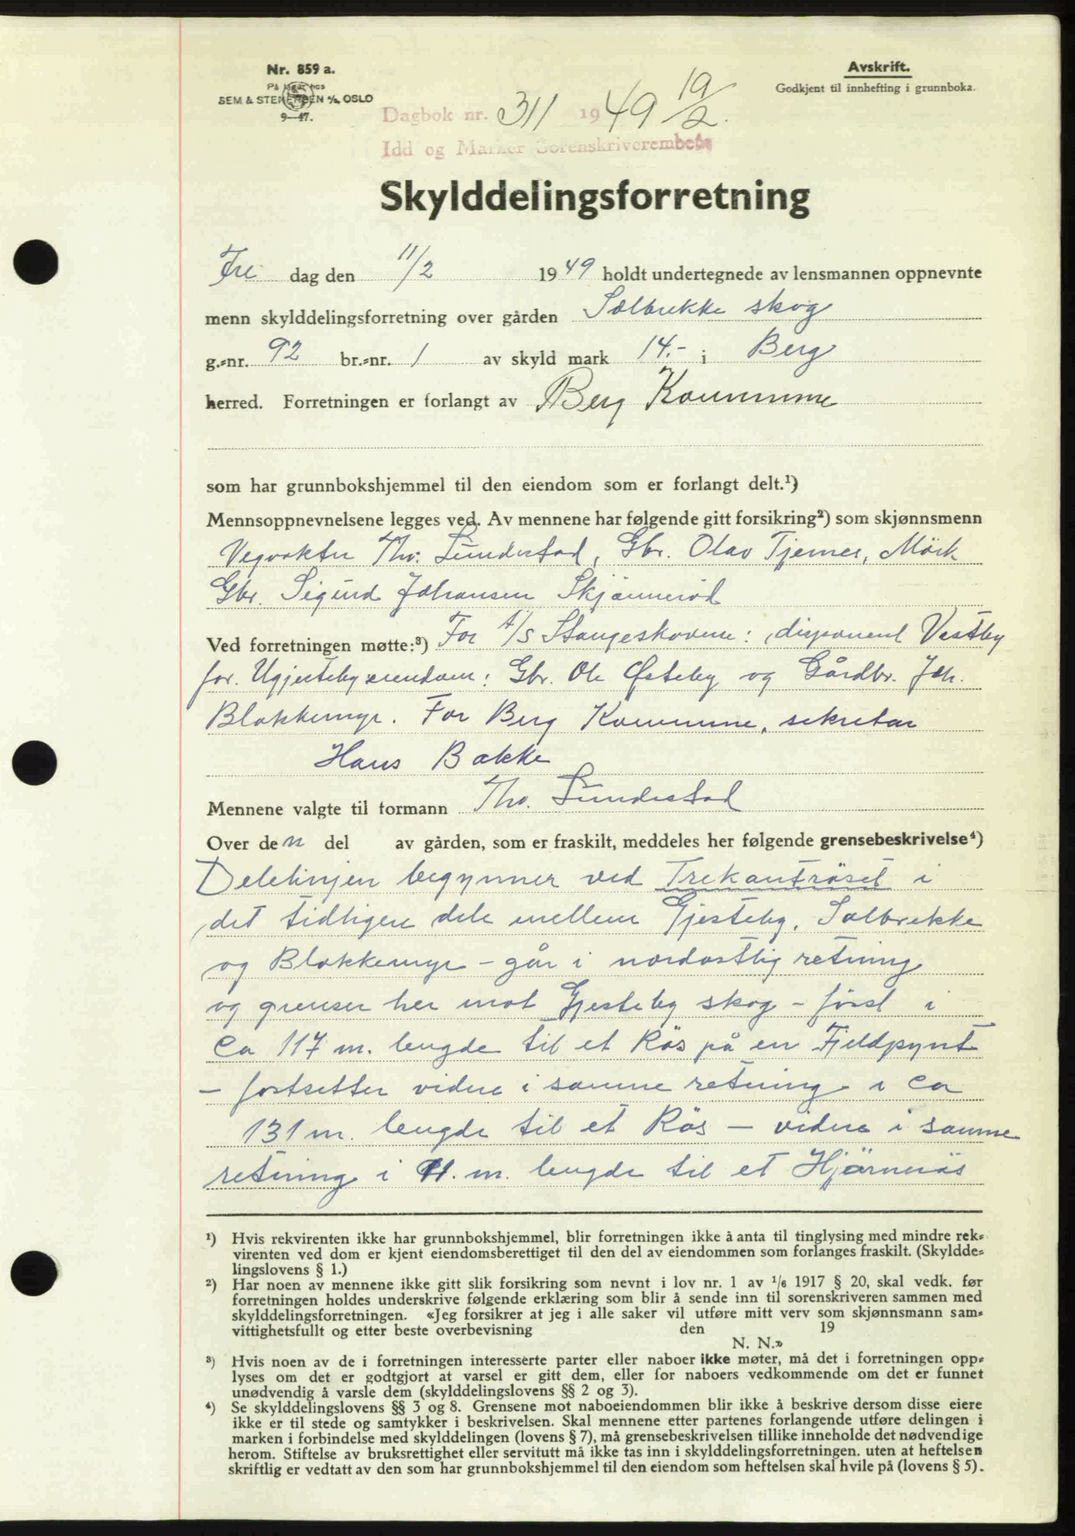 Nr. 859 a.
På lager hos
SEM & STENERSEN A/S, OSLO
9—47.
Avskrift.
Godkjent til innhefting i grunnboka.
Dagbok nr. 311 1949 19/2.
Idd og Marker Sorenskriverembede
Skylddelingsforretning
Fre dag den 11/2 1949 holdt undertegnede av lensmannen oppnevnte
menn skylddelingsforretning over gården Sølbrekke skog
g.-nr. 92 br.-nr. 1 av skyld mark 14.- i Berg
herred. Forretningen er forlangt av Berg Kommune
som har grunnbokshjemmel til den eiendom som er forlangt delt.¹)
Mennsoppnevnelsene legges ved. Av mennene har følgende gitt forsikring²) som skjønnsmenn
Vegvokter Thv. Sundestad, Gbr. Olav Tjernes, Mörk
Gbr. Sigurd Johansen Skjønnerød
Ved forretningen møtte:³) For A/S Stangeskovene: disponent Vestby
for Ugjestebyeiendom: Gbr. Ole Østeby og Gårdbr. Joh.
Blokkemyr. For Berg Kommune, sekretær
Hans Bakke
Mennene valgte til formann Thv. Sundestad
Over den del av gården, som er fraskilt, meddeles her følgende grensebeskrivelse⁴)
Delelinjen begynner ved Trekantröset i
det tidligere dele mellem Gjesteby, Sølbrekke
og Blokkemyr – går i nordøstlig retning
og grenser her mot Gjesteby skog – först i
Ca 117 m. lengde til et Rös på en Fjeldpynt
– fortsetter videre i samme retning i ca
131 m. lengde til et Rös – videre i samme
retning i 91. m. lengde til et Hjörnerös
¹) Hvis rekvirenten ikke har grunnbokshjemmel, blir forretningen ikke å anta til tinglysing med mindre rek-
virenten ved dom er kjent eiendomsberettiget til den del av eiendommen som forlanges fraskilt. (Skyldde-
lingslovens § 1.)
²) Har noen av mennene ikke gitt slik forsikring som nevnt i lov nr. 1 av 1/6 1917 § 20, skal vedk. før
forretningen holdes underskrive følgende erklæring som blir å sende inn til sorenskriveren sammen med
skylddelingsforretningen. «Jeg forsikrer at jeg i alle saker vil utføre mitt verv som skjønnsmann sam-
vittighetsfullt og etter beste overbevisning den 19
N. N.»
³) Hvis noen av de i forretningen interesserte parter eller naboer ikke møter, må det i forretningen opp-
lyses om det er godtgjort at varsel er gitt dem, eller for naboers vedkommende om det er funnet
unødvendig å varsle dem (skylddelingslovens §§ 2 og 3).
⁴) Se skylddelingslovens §§ 3 og 8. Grensene mot naboeiendommen blir ikke å beskrive dersom disse eiere
ikke er til stede og samtykker i beskrivelsen. Skal mennene etter partenes forlangende utføre delingen i
marken i forbindelse med skylddelingen (lovens § 7), må grensebeskrivelsen tillike inneholde det nødvendige
herom. Stiftelse av bruksrettighet eller servitutt må ikke tas inn i skylddelingsforretningen, uten at heftelsen
skriftlig er vedtatt av den som har grunnbokshjemmel til den eiendom som heftelsen skal hvile på (lovens § 5).